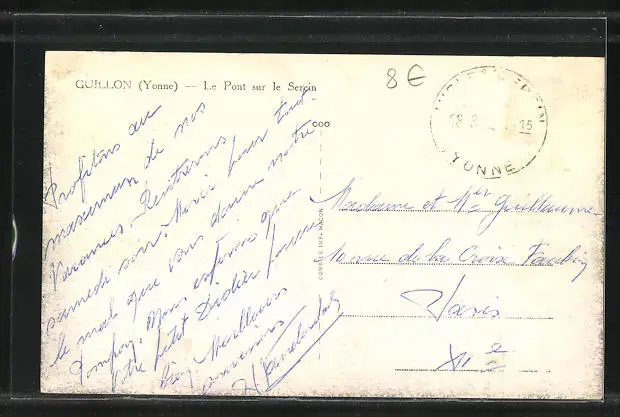 GUILLON (Yonne) — Le Pont sur le Serein
8€
Profitons au
maximum de nos
Vacances. Rentrerons
samedi soir. Merci pour tout
le mal que vous donne notre
Pompon. Nous espérons que
votre petit Didier
bien. Meilleurs
souvenirs
COO
COMBIER IMP. MACON
18
15
YONNE
Madame et Mr Guillaume
10 rue de la Croix Faubin
Paris
XIe